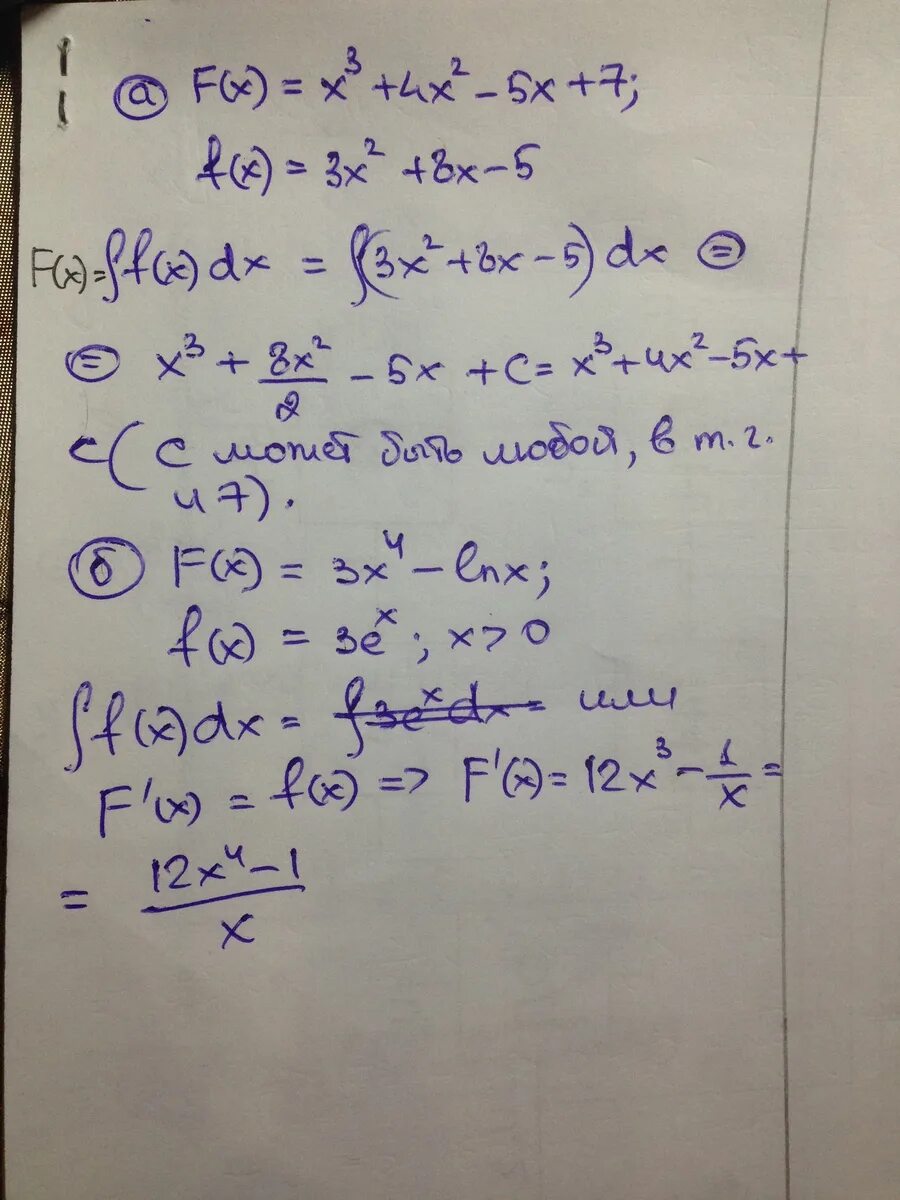 а) F(x) = x³ + 4x² - 5x + 7;
f(x) = 3x² + 8x - 5
F(x) = ∫f(x)dx = ∫(3x² + 8x - 5)dx =
= x³ + 8x²/2 - 5x + C = x³ + 4x² - 5x +
C (C может быть любой, в т. г.
и 7).
б) F(x) = 3x⁴ - lnx;
f(x) = 3eˣ; x > 0
∫f(x)dx = ∫3eˣdx = или
F'(x) = f(x) => F'(x) = 12x³ - 1/x =
= (12x⁴ - 1)/x